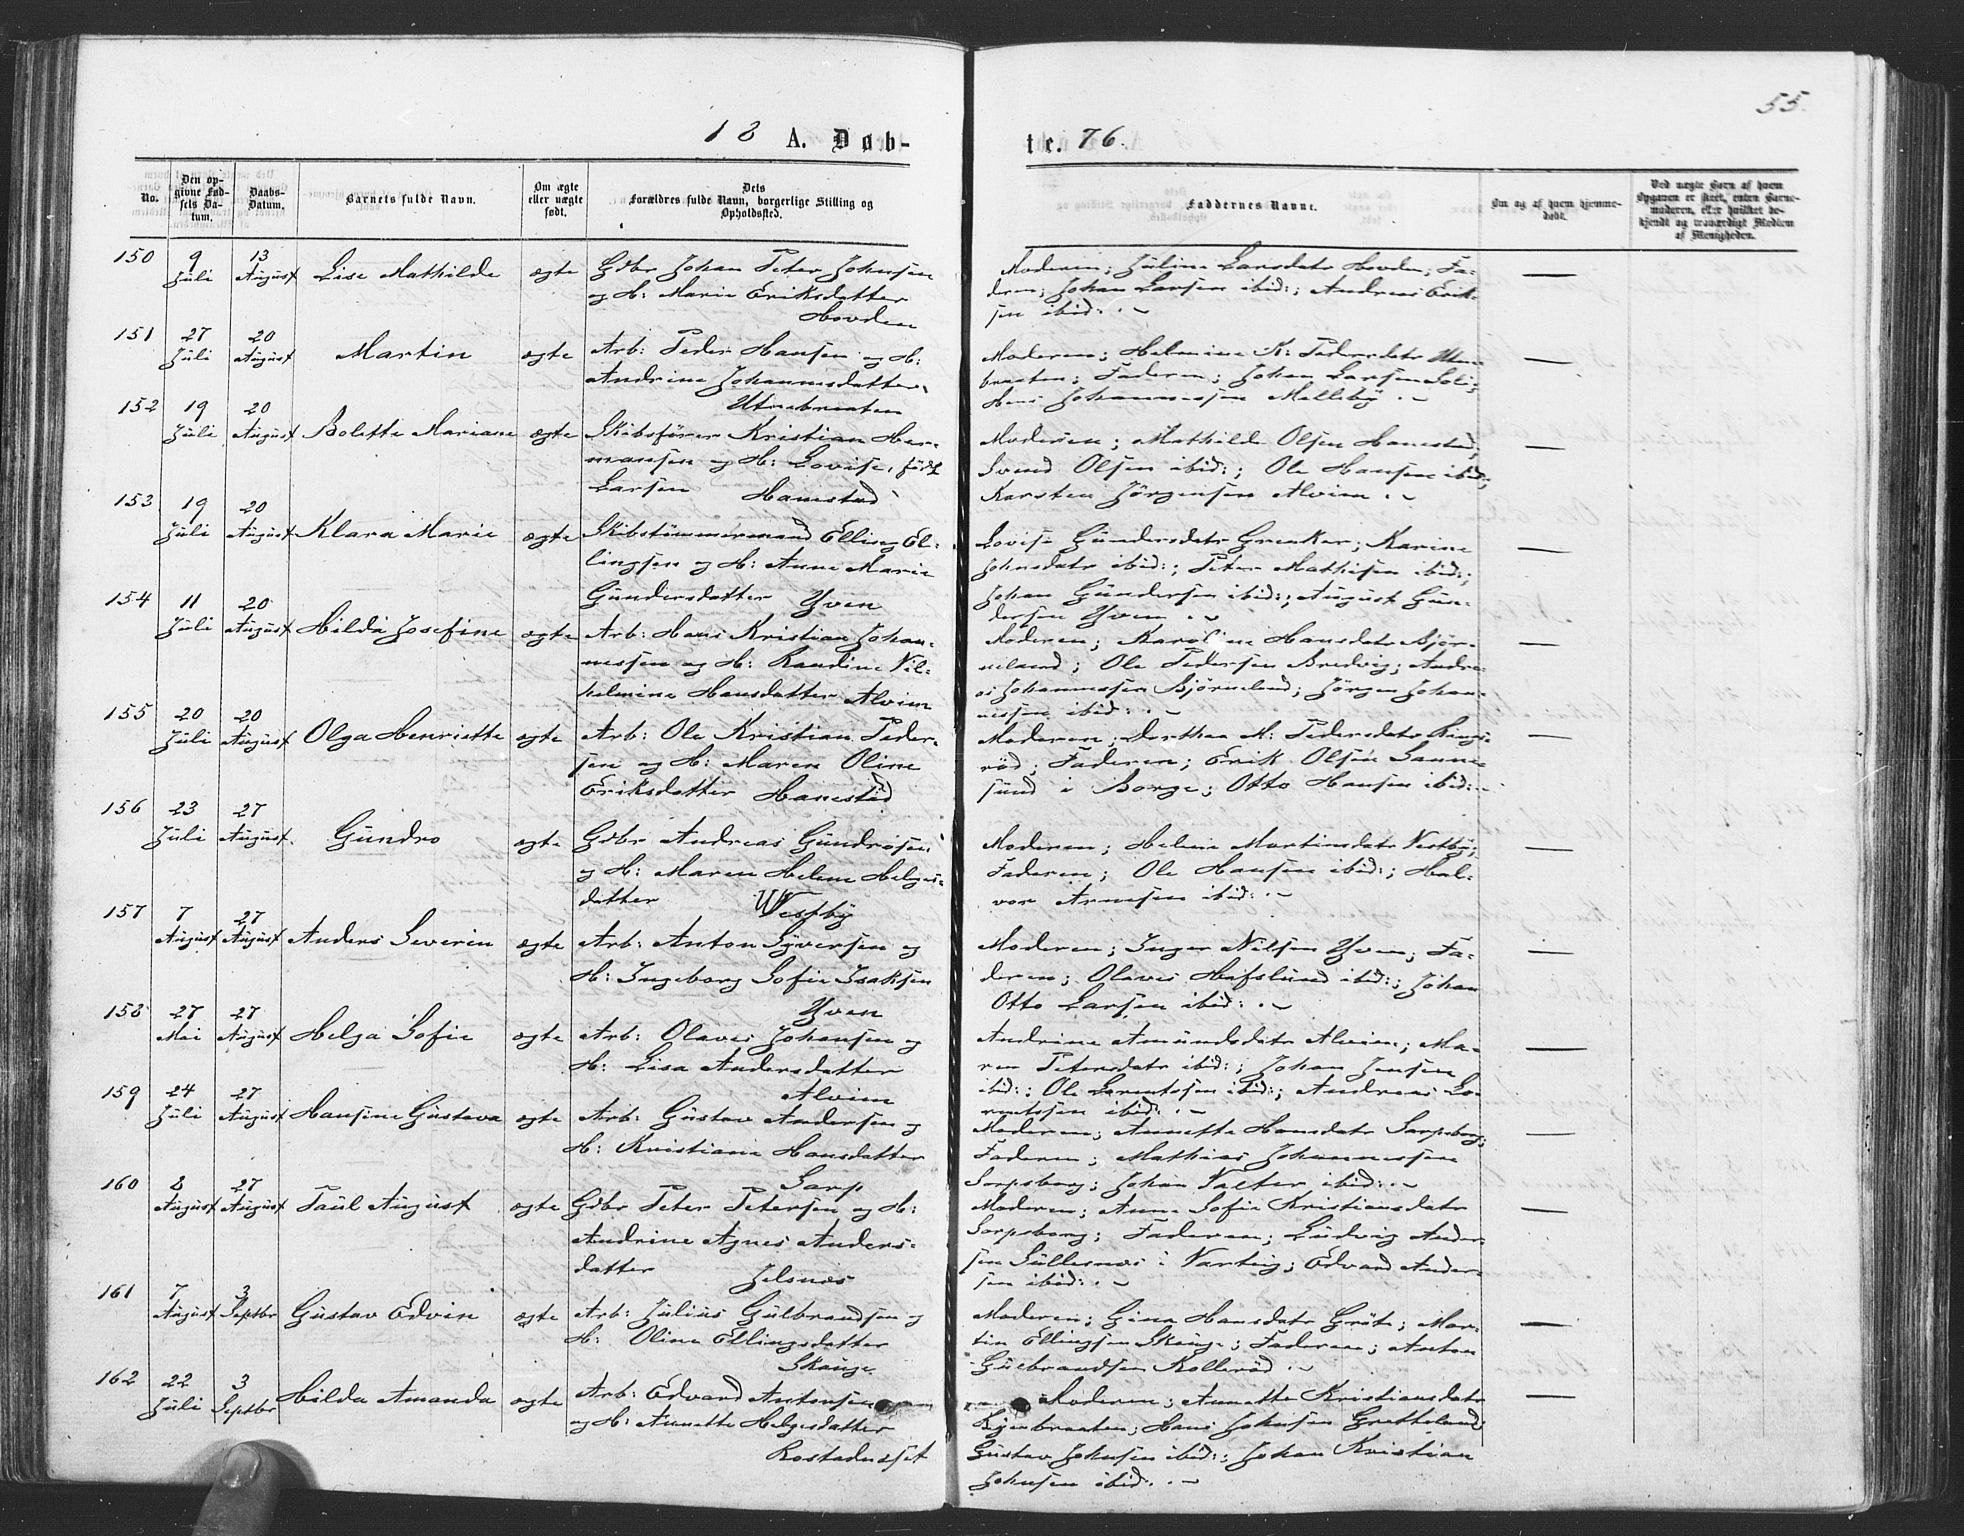 55.
18 A. Døb-
te. 76.
No.
Den op-
givne Fød-
sels Da-
tum.
Daabs-
Datum.
Barnets fulde Navn.
Om ægte
eller uægte
født.
Dets
Forældres fulde Navn, borgerlige Stilling og
Opholdssted.
Faddernes Navne.
Om og af hvem hjemme-
døbt.
Ved uægte Børn af hvem
Opgaven er skeet, enten Barne-
moderen, eller hvilket be-
kjendt og troværdigt Medlem
af Menigheden.
150 9 Juli 13 August Lise Mathilde ægte Gdbr Johan Peter Johansen
og H: Marie Eriksdatter
Hovden
Moderen; Juline Larsdatr Hovden; Fa-
deren; Johan Larsen ibid:; Andreas Erik-
sen ibid:.
151 27 Juli 20 August Martin ægte Arb: Peder Hansen og H:
Andrine Johannesdatter
Utnebraaten
Moderen; Helmine K: Pedersdatr Utne-
braaten; Faderen; Johan Larsen Soli;
Hans Johannesen Melleby.
152 19 Juli 20 August Bolette Mariane ægte Skibsfører Kristian Her-
mansen og H: Lovise, født
Larsen Hanestad
Moderen; Mathilde Olsen Hanestad;
Svend Olsen ibid:; Ole Hansen ibid:;
Karsten Jørgensen Alvim.
153 19 Juli 20 August Klara Marie ægte Skibstømmermand Elling El-
lingsen og H: Anne Marie
Gundersdatter Yven
Lovise Gundersdatr Greaker; Karine
Johnsdatr ibid:; Peter Mathisen ibid:;
Johan Gundersen ibid:; August Gun-
dersen Yven.
154 11 Juli 20 August Hilda Josefine ægte Arb: Hans Kristian Johan-
nessen og H: Randine Vil-
helmine Hansdatter Alvim
Moderen; Karoline Hansdatr Bjør-
neland; Ole Pedersen Bredvig; Andre-
as Johannessen Bjørneland; Jørgen Johan-
nessen ibid:.
155 20 Juli 20 August Olga Henriette ægte Arb: Ole Kristian Peder-
sen og H: Maren Oline
Eriksdatter Hanestad
Moderen; Dorthea M: Pedersdatr Rings-
rød; Faderen; Erik Olsen Sanne-
sund i Borge; Otto Hansen ibid:.
156 23 Juli 27 August Gundro ægte Gdbr Andreas Gundrosen
og H: Maren Helene Helges-
datter Westby
Moderen; Helene Martinsdatr Vestby;
Faderen; Ole Hansen ibid:; Hal-
vor Arnesen ibid:.
157 7 August 27 August Anders Severin ægte Arb: Anton Syversen og
H: Ingeborg Sofie Isaksen
Yven
Moderen; Inger Nilsen Yven; Fa-
deren; Olaves Hafslund ibid:; Johan
Otto Larsen ibid:.
158 27 Mai 27 August Helga Sofie ægte Arb: Olaves Johansen og
H: Lisa Andersdatter
Alvim
Andrine Amundsdatr Alvim; Ma-
ren Petersdatr ibid:; Johan Jensen
ibid:; Ole Larentssen ibid:; Andreas Lo-
rentssen ibid:.
159 24 Juli 27 August Hansine Gustava ægte Arb: Gustav Andersen og
H: Kristiane Hansdatter
Sarp
Moderen; Annette Hansdatr Sarpsborg;
Faderen; Mathias Johannessen
Sarpsborg; Johan Valter ibid:.
160 8 August 27 August Paul August ægte Gdbr Peter Petersen og H:
Andrine Agnes Anders-
datter Jelsnes
Moderen; Anne Sofie Kristiansdatr
Sarpsborg; Faderen; Ludvig Ander-
sen Sullesnes i Varteig; Edvard Ander-
sen ibid:.
161 7 August 3 Septbr Gustav Edvin ægte Arb: Julius Gulbrandsen og
H: Oline Ellingsdatter
Skauge
Moderen; Gina Hansdatr Grøte; Mar-
tin Ellingsen Skauge; Faderen; Anton
Gulbrandsen Kollerød.
162 22 Juli 3 Septbr Hilda Amanda ægte Arb: Edvard Antonsen
og H: Annette Helgesdatter
Rostadneset
Moderen; Annette Kristiansdatr
Hans Johnsen Gretteland;
Gustav Johnsen ibid:; Johan Kristian
Johnsen ibid:.